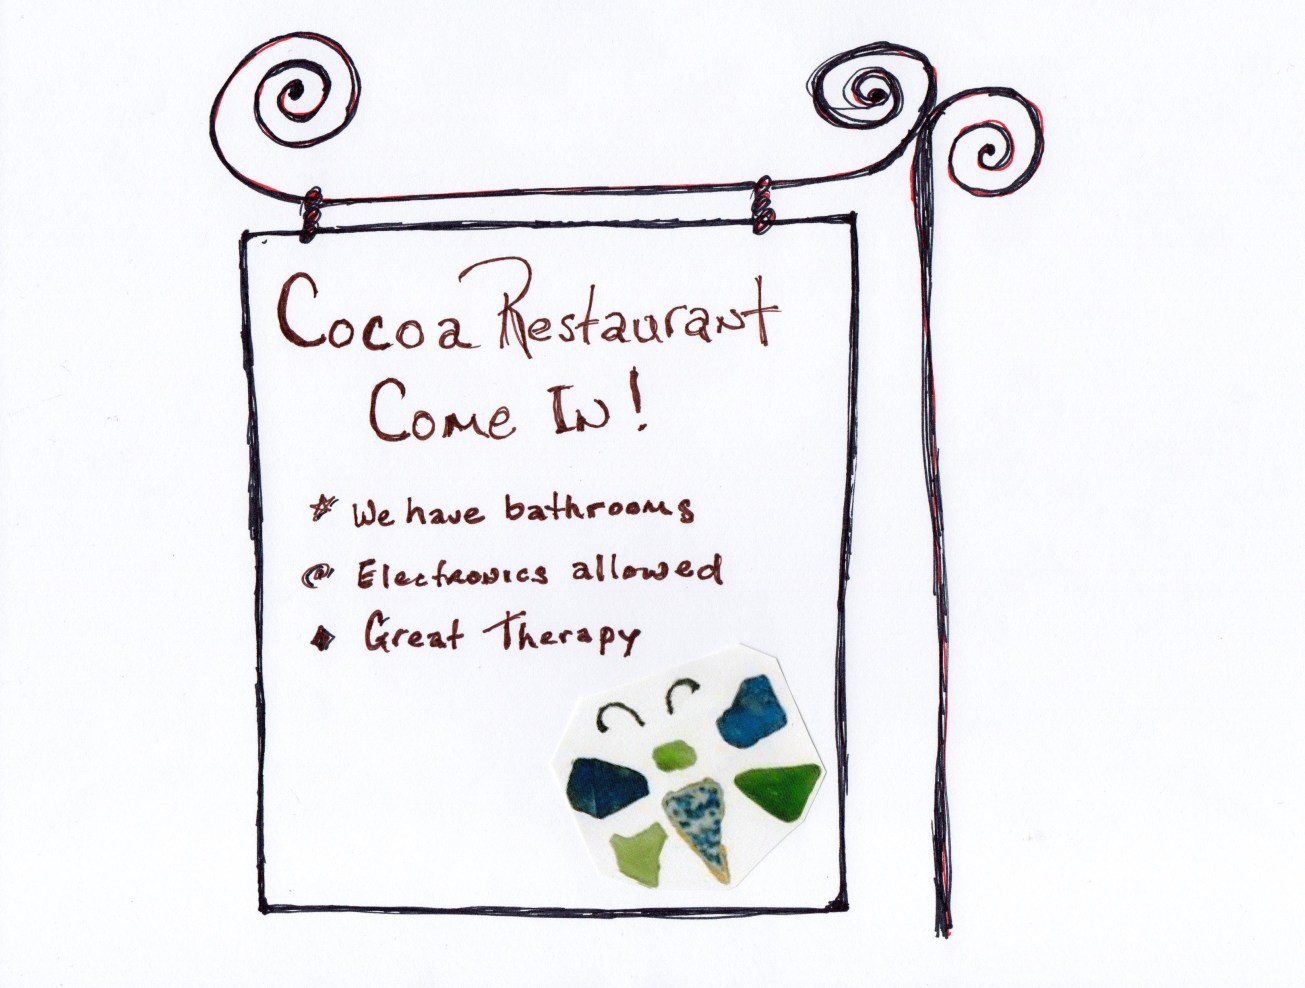 Cocoa Restaurant
Come In!
We have bathrooms
Electronics allowed
Great Therapy